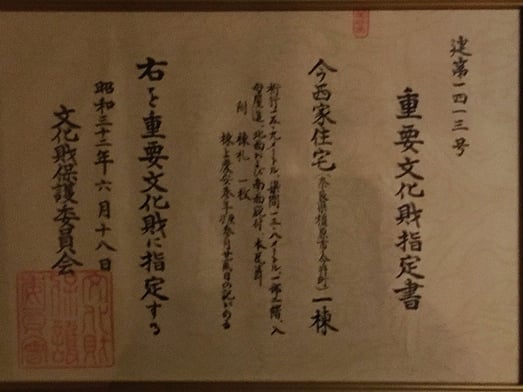 建第一四一三号
重要文化財指定書
今西家住宅（奈良県橿原市今井町）一棟
桁行一五・九メートル、梁間一三・八メートル、一部二階、入
母屋造、北面および南面庇付、本瓦葺
附 棟札 一枚
棟上慶安参年 参月廿 日の記がある
右を重要文化財に指定する
昭和三十二年六月十八日
文化財保護委員会
文化財
保護
委員会